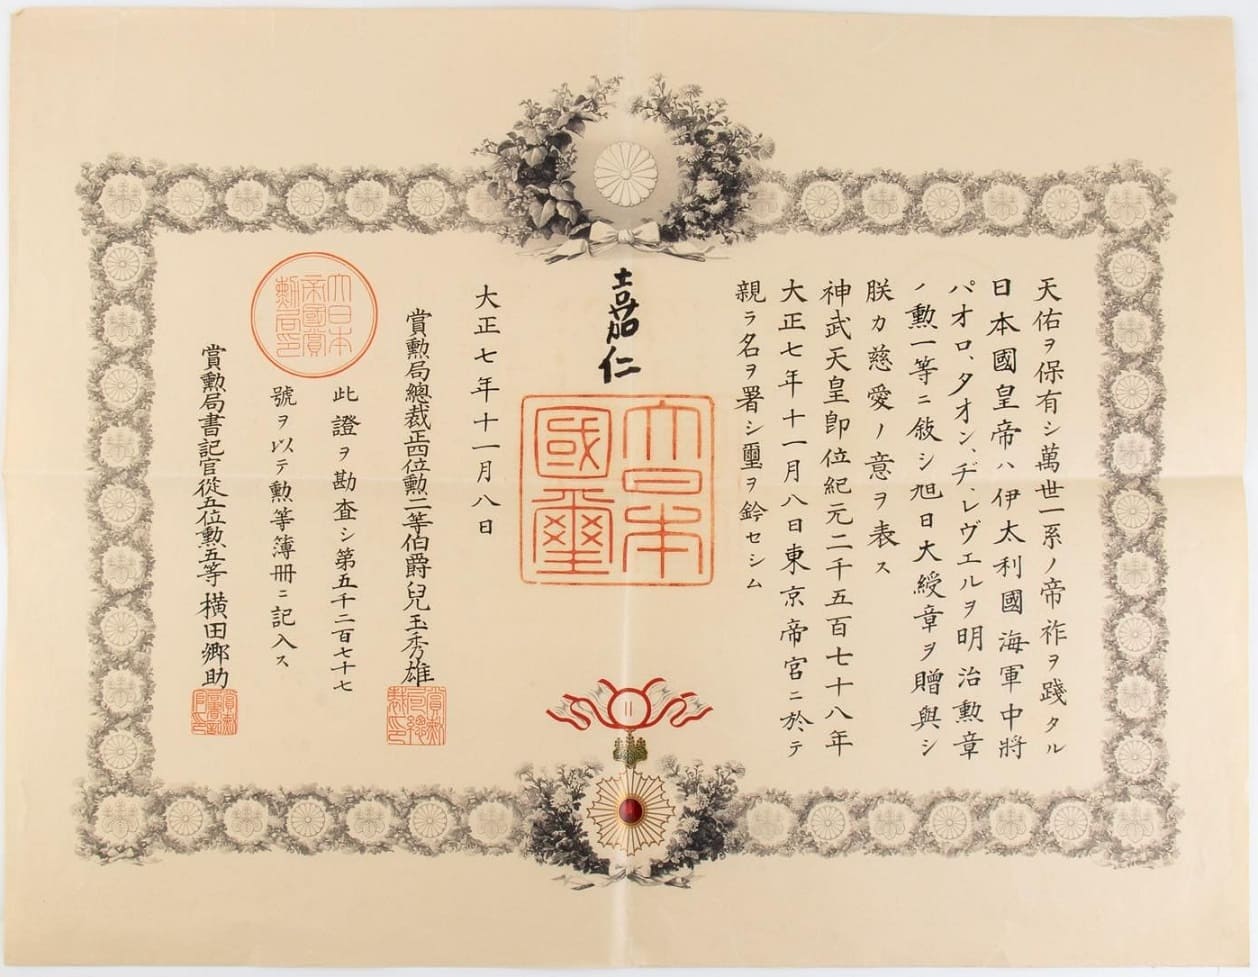 天佑ヲ保有シ萬世一系ノ帝祚ヲ踐タル
日本國皇帝ハ伊太利國海軍中將
パオロ、タオン、ヂ、レヴェルヲ明治勳章
ノ勳一等ニ敍シ旭日大綬章ヲ贈與シ
朕カ慈愛ノ意ヲ表ス
神武天皇即位紀元二千五百七十八年
大正七年十一月八日東京帝宮ニ於テ
親ラ名ヲ署シ璽ヲ鈐セシム
嘉仁
大日本
國璽
大正七年十一月八日
賞勲局總裁正四位勲二等伯爵兒玉秀雄
賞勲局總裁印
大日本帝國賞勲局印
此證ヲ勘査シ第五千二百七十七
號ヲ以テ勲等簿冊ニ記入ス
賞勲局書記官從五位勲五等横田郷助